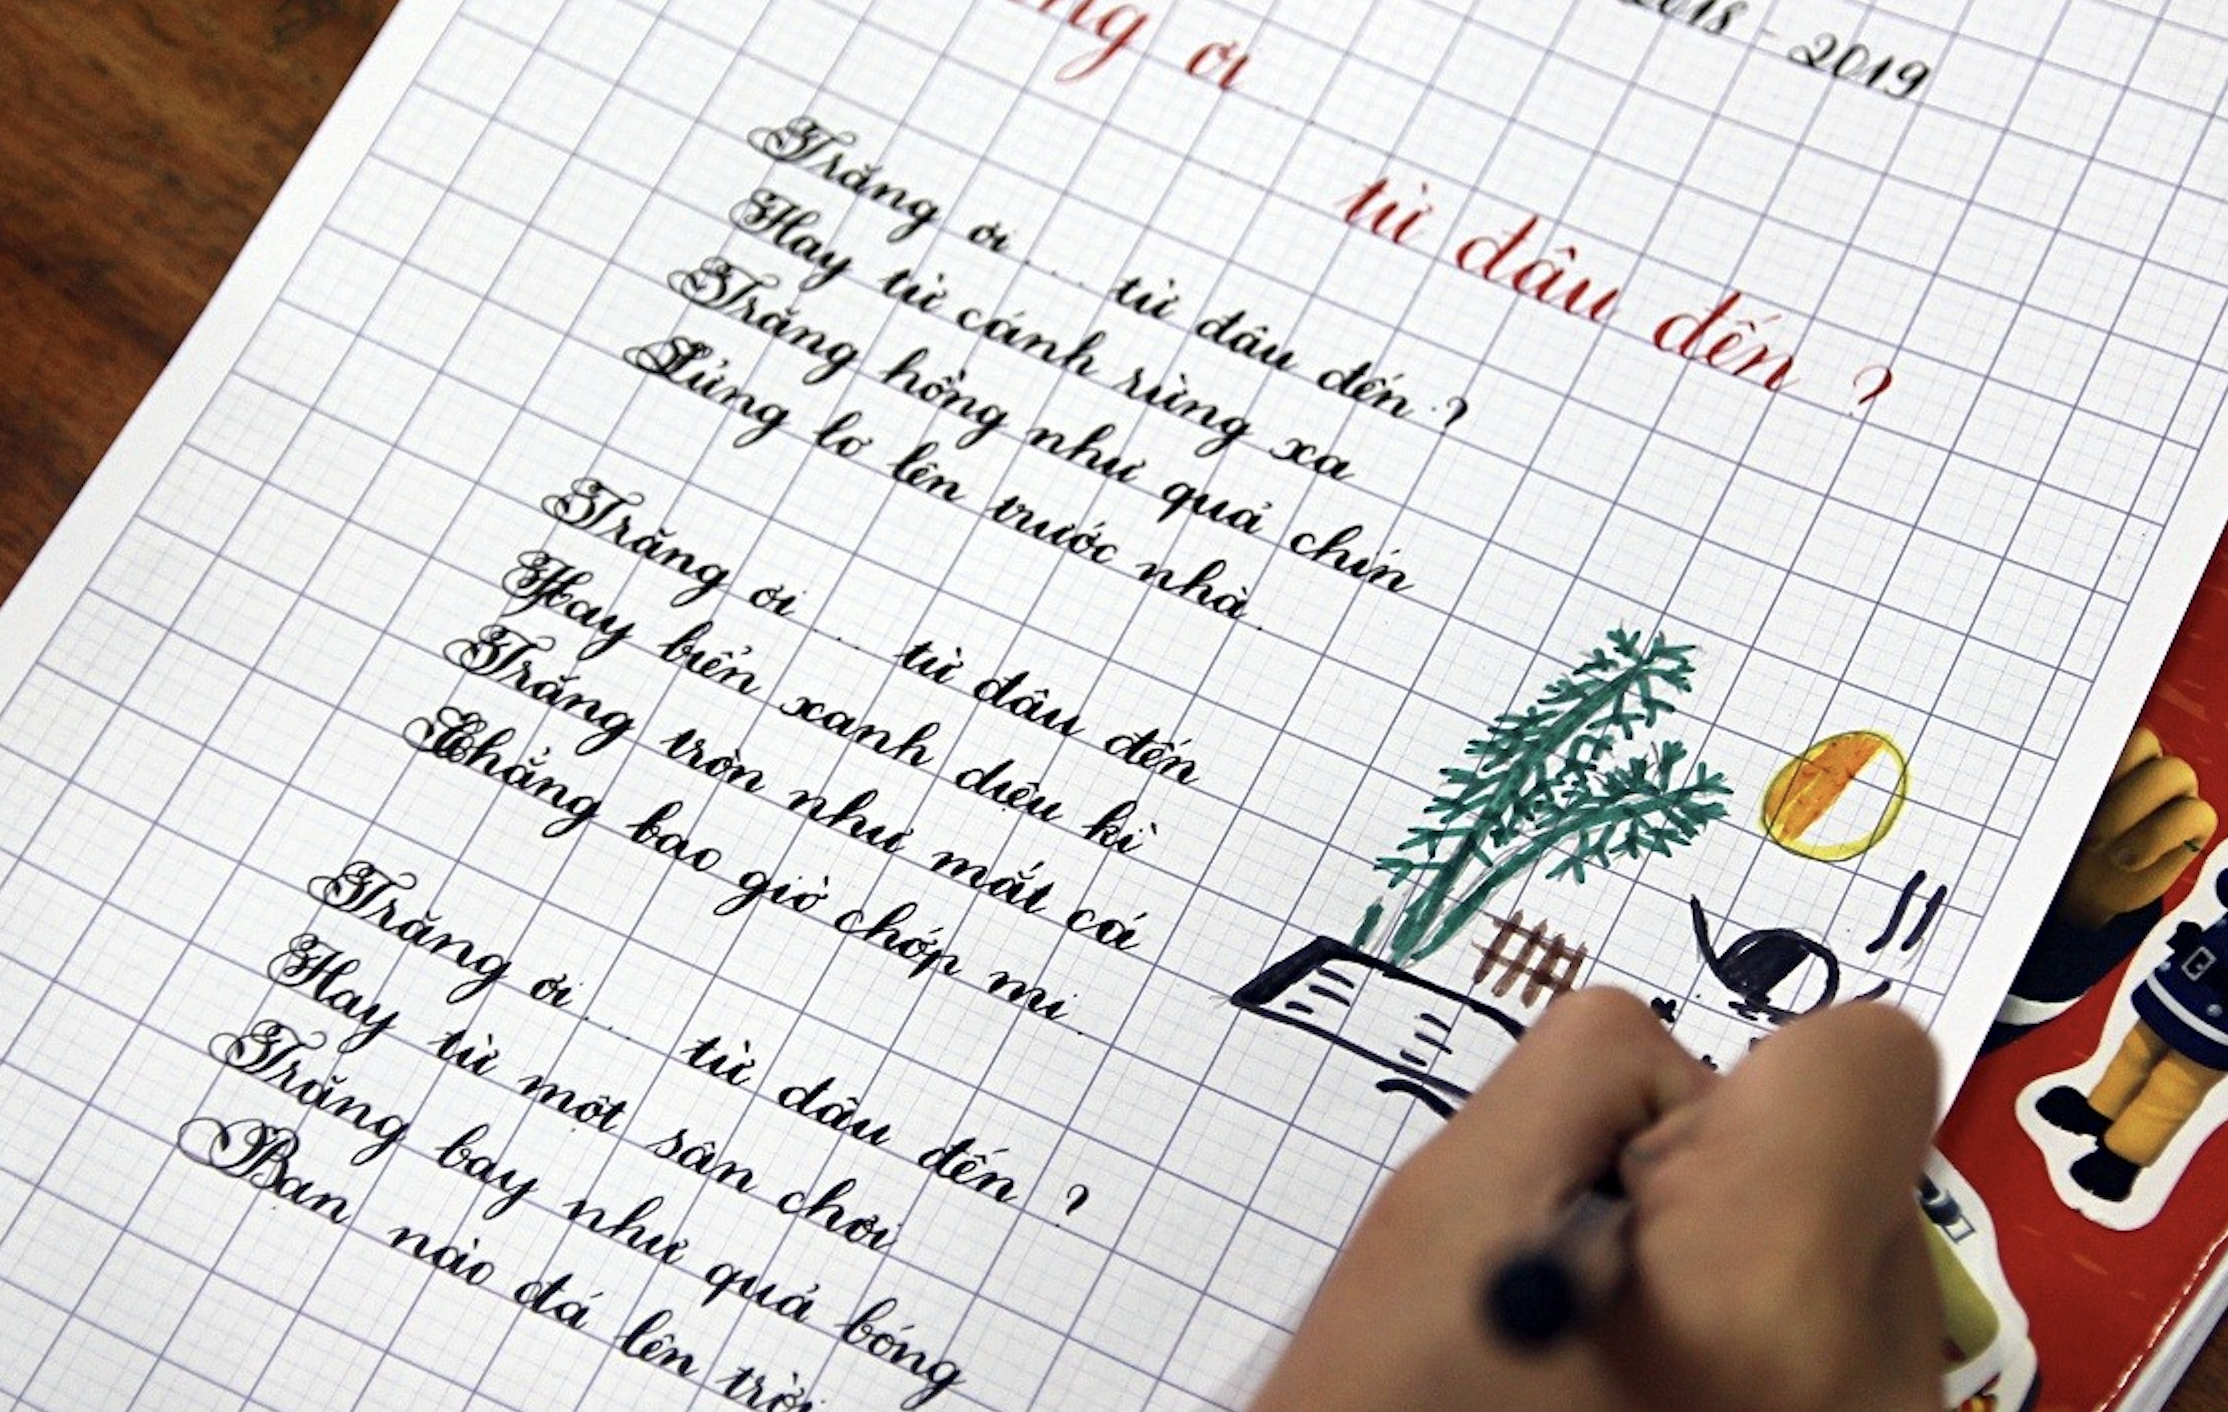 2018 - 2019
ng ơi
từ đâu đến ?
Trăng ơi ... từ đâu đến ?
Hay từ cánh rừng xa
Trăng hồng như quả chín
Lửng lơ lên trước nhà.
Trăng ơi ... từ đâu đến
Hay biển xanh diệu kì
Trăng tròn như mắt cá
Chẳng bao giờ chớp mi.
Trăng ơi ... từ đâu đến ?
Hay từ một sân chơi
Trăng bay như quả bóng
Bạn nào đá lên trời